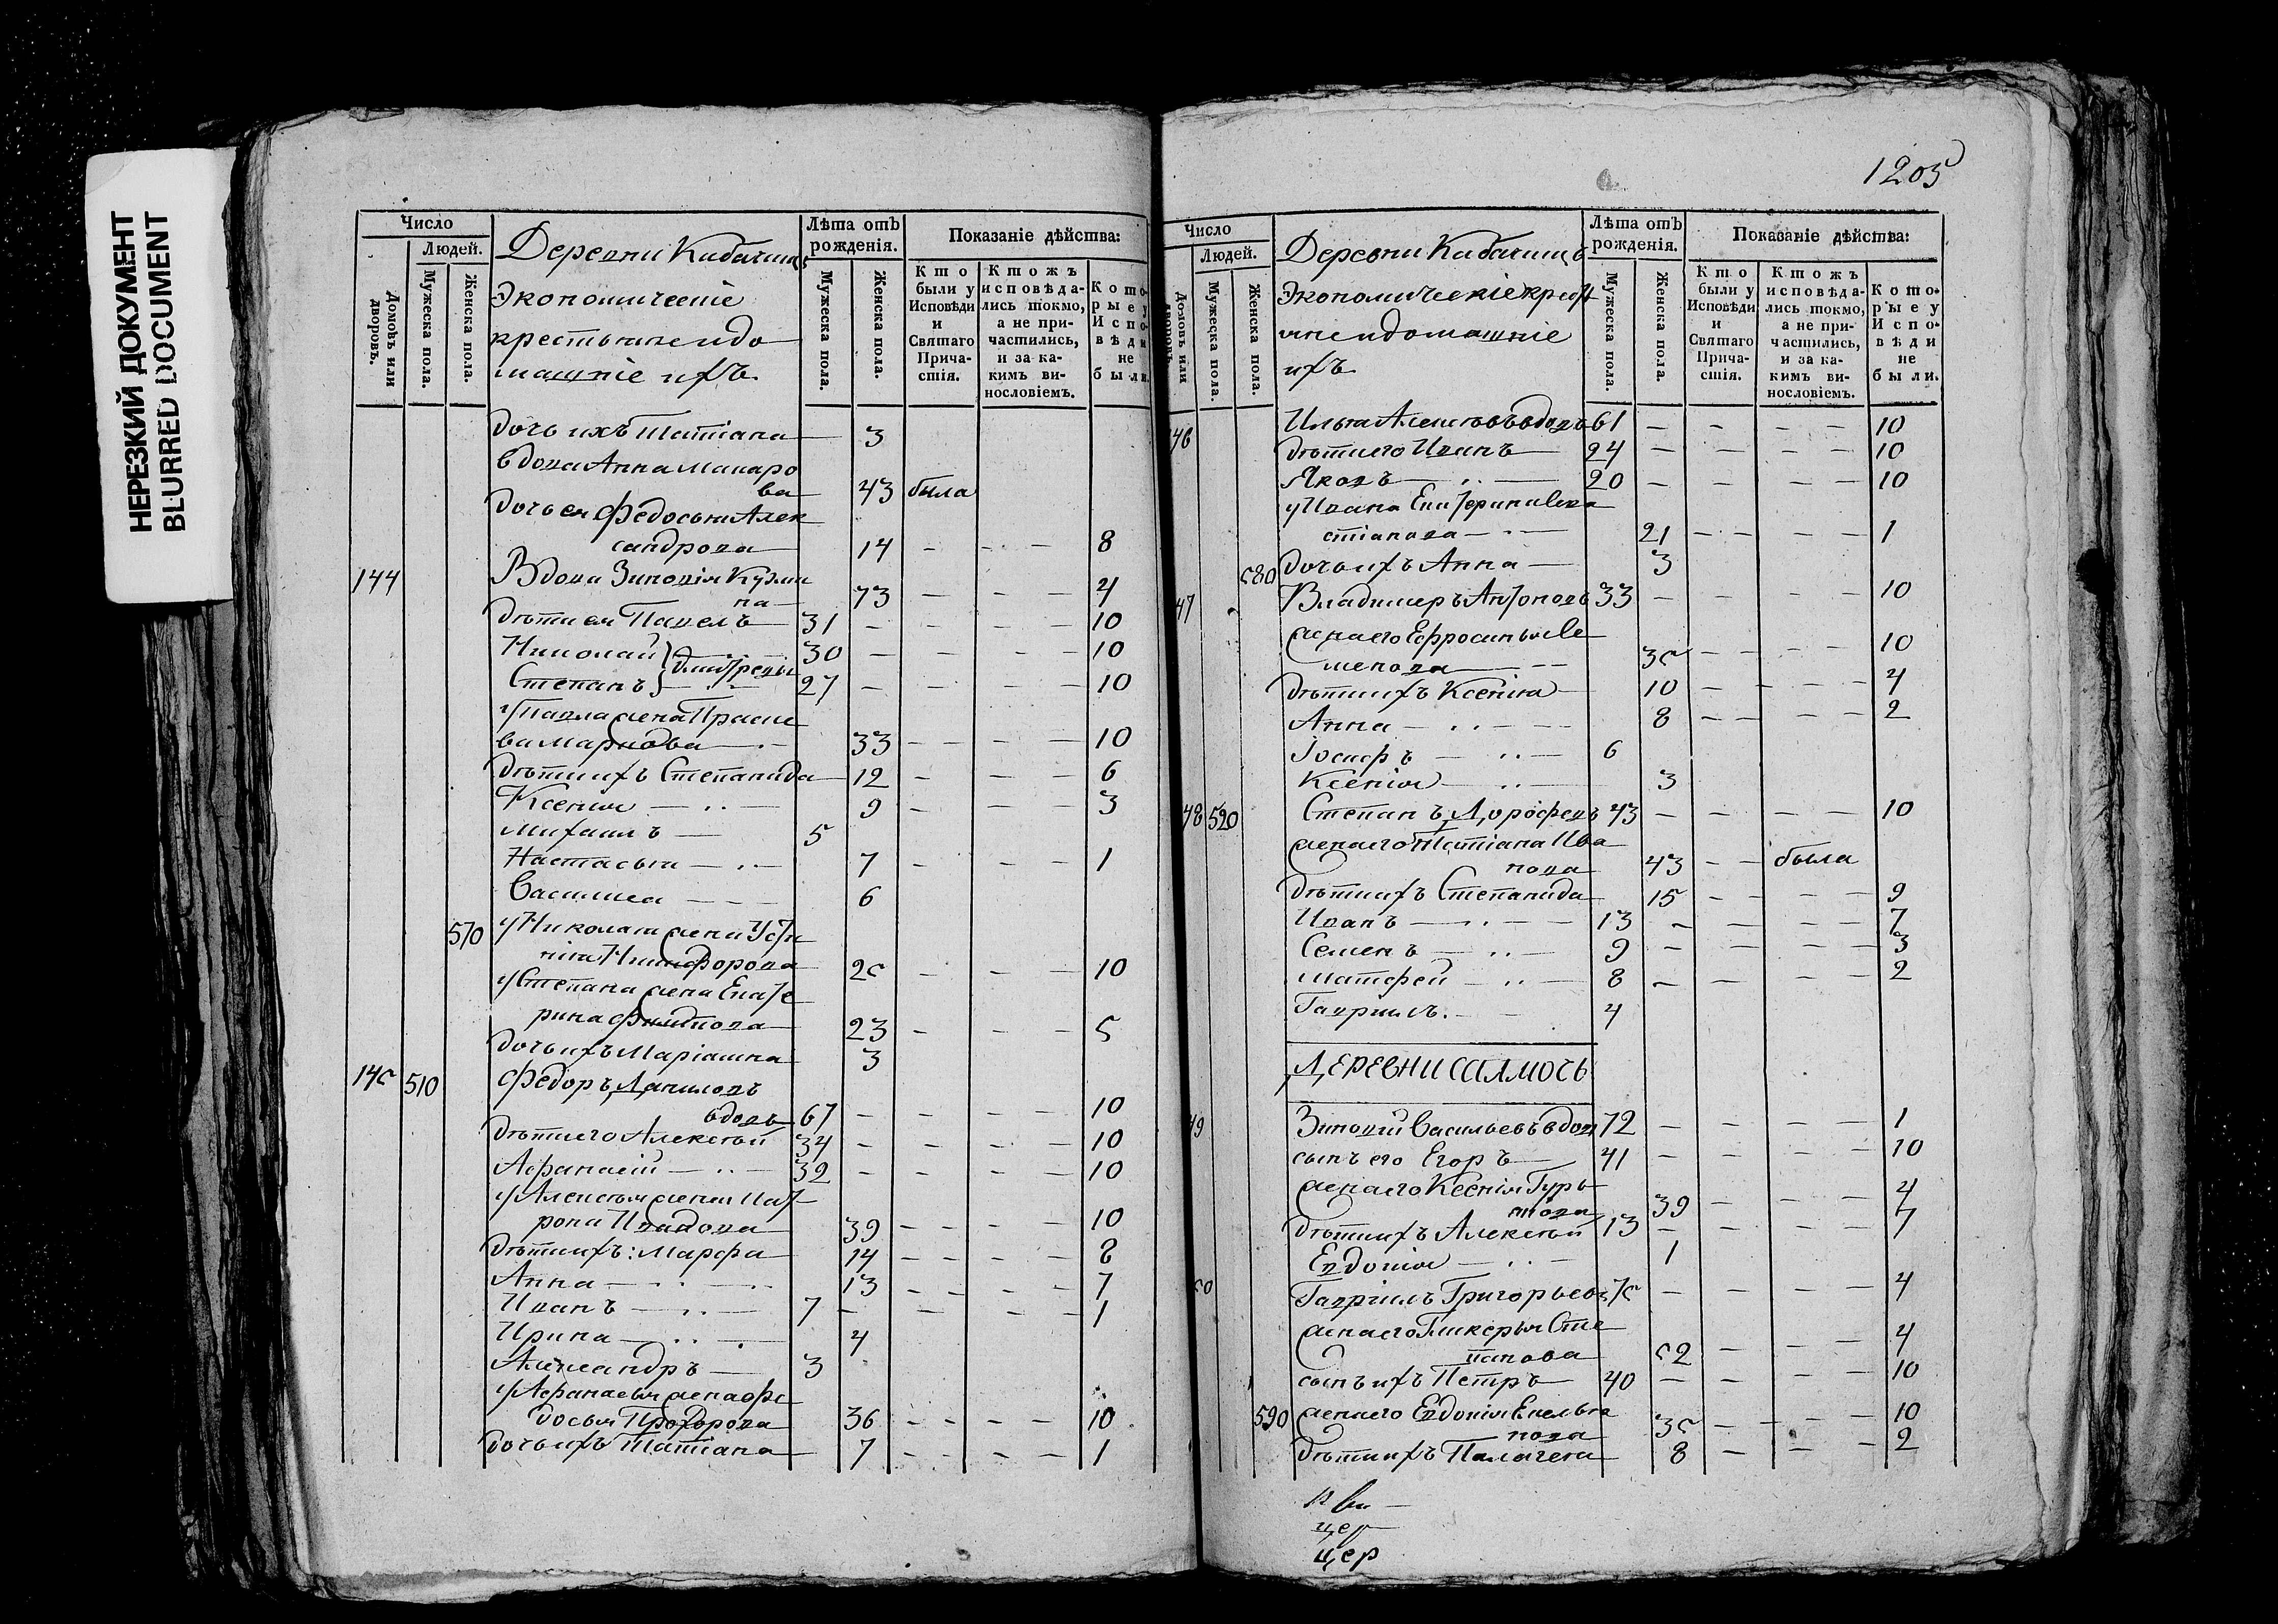 НЕРЕЗКИЙ ДОКУМЕНТ
BLURRED DOCUMENT
Число
Людей.
Домовъ или дворовъ.
Мужеска пола.
Женска пола.
Деревни
Экономическіе
крестьяне и до
машніе ихъ
Лѣта отъ рожденія.
Мужеска пола.
Женска пола.
Показаніе дѣйства:
Кто были у Исповѣди и Святаго Причастія.
Ктожъ исповѣдались токмо, а не причастились, и за какимъ винословіемъ.
Которые у Исповѣди не были.
дочь ихъ Татіана 3
вдова Анна Макаро
ва 43 была
дочь ея Федосья Алек
сандрова 14 - - - 8
144 Вдова Зиновія Кузми
на 73 - - - 4
дѣти ея Павелъ 31 - - - 10
Николай 30 - - - 10
Степанъ 27 - - - 10
у Павла жена Праске
ва Маркова 33 - - - 10
дѣти ихъ Степанида 12 - - - 6
Ксенія 9 - - - 3
Михаилъ 5
Настасья 7 - - - 1
Василиса 6
570 у Николая жена Усти
нія Никифорова 25 - - - 10
у Степана жена Екате
рина Филипова 23 - - - 5
дочь ихъ Маріамна 3
145 510 Федоръ Даниловъ
вдовъ 67 - - - 10
дѣти его Алексѣй 34 - - - 10
Афанасій 32 - - - 10
у Алексѣя жена Мат
рона Иванова 39 - - - 10
дѣти ихъ: Марфа 14 - - - 8
Анна 13 - - - 7
Иванъ 7 - - - 1
Ирина 4
Александръ 3
у Афанасья жена Фе
досья Прохорова 36 - - - 10
дочь ихъ Татіана 7 - - - 1
1205
Число
Людей.
Домовъ или дворовъ.
Мужеска пола.
Женска пола.
Деревни
Экономическіе крест
яне и домашніе
ихъ
Лѣта отъ рожденія.
Мужеска пола.
Женска пола.
Показаніе дѣйства:
Кто были у Исповѣди и Святаго Причастія.
Ктожъ исповѣдались токмо, а не причастились, и за какимъ винословіемъ.
Которые у Исповѣди не были.
46 Илья вдовъ 61 - - - 10
дѣти его Иванъ 24 - - - 10
Яковъ 20 - - - 10
у Ивана Екатерина Сева
стіанова 21 - - - 1
580 дочь ихъ Анна 3
47 Владимеръ Антоновъ 33 - - - 10
жена его Ефросинья Се
менова 35 - - - 10
дѣти ихъ Ксенія 10 - - - 4
Анна 8 - - - 2
Іосифъ 6
Ксенія 3
48 520 Степанъ Дорофеевъ 43 - - - 10
жена его Татіана Ива
нова 43 - - была
дѣти ихъ Степанида 15 - - - 9
Иванъ 13 - - - 7
Семенъ 9 - - - 3
Матфей 8 - - - 2
Гавриилъ. 4
ДЕРЕВНИ
49 Зиновій Васильевъ вдов 72 - - - 1
сынъ его Егоръ 41 - - - 10
жена его Ксенія Гурь
39 - - - 4
дѣти ихъ Алексѣй 13 - - - 7
Евдокія 1
50 Гавріилъ Григорьевъ 75 - - - 4
жена его Гликерья Сте
панова 52 - - - 4
сынъ ихъ Петръ 40 - - - 10
590 жена его Евдокія Емелья
нова 35 - - - 10
дѣти ихъ Палагея 8 - - - 2
цер
цер